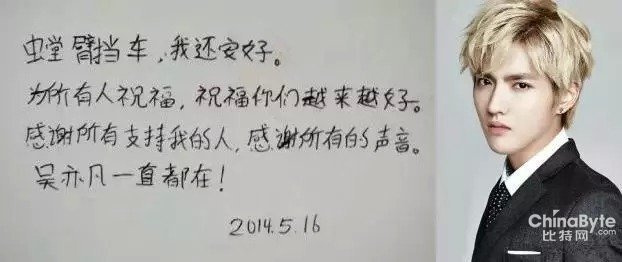 虫堂臂挡车，我还安好。
为所有人祝福，祝福你们越来越好。
感谢所有支持我的人，感谢所有的声音。
吴亦凡一直都在！
2014.5.16
ChinaByte
比特网.com